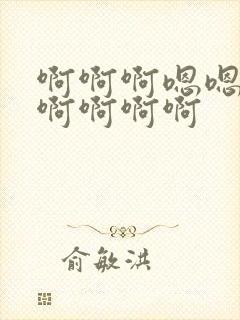 啊啊啊嗯嗯
啊啊啊啊
俞敏洪